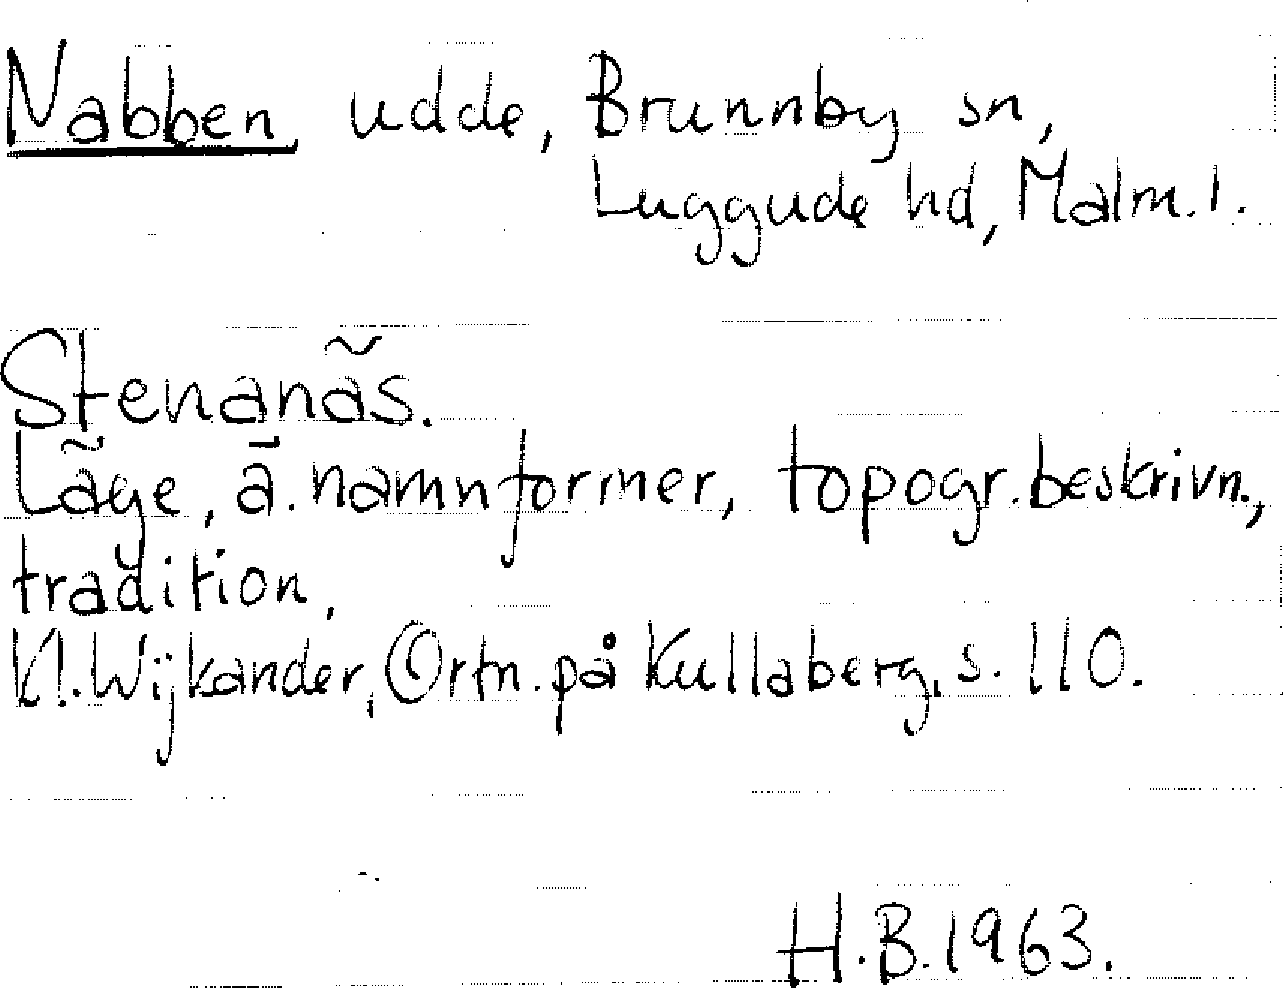 Nabben, udde, Brunnby sn,
Luggude hd, Malm.l.
Stenanäs.
Läge, ä. namnformer, topogr.beskrivn.,
tradition,
N.Wijkander, Ortn. på Kullaberg, s. 110.
H.B.1963.